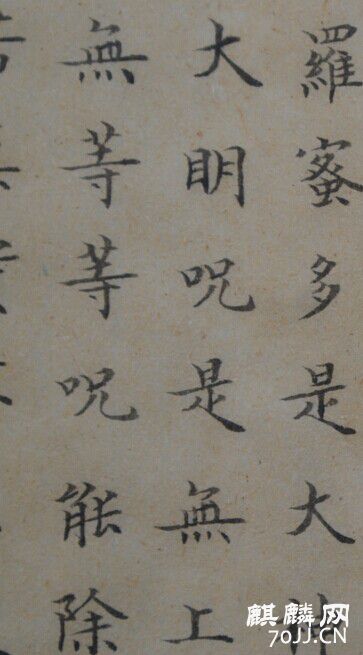 羅蜜多是大神
大明呪是無上
無等等呪能除
麒麟网
70JJ.CN